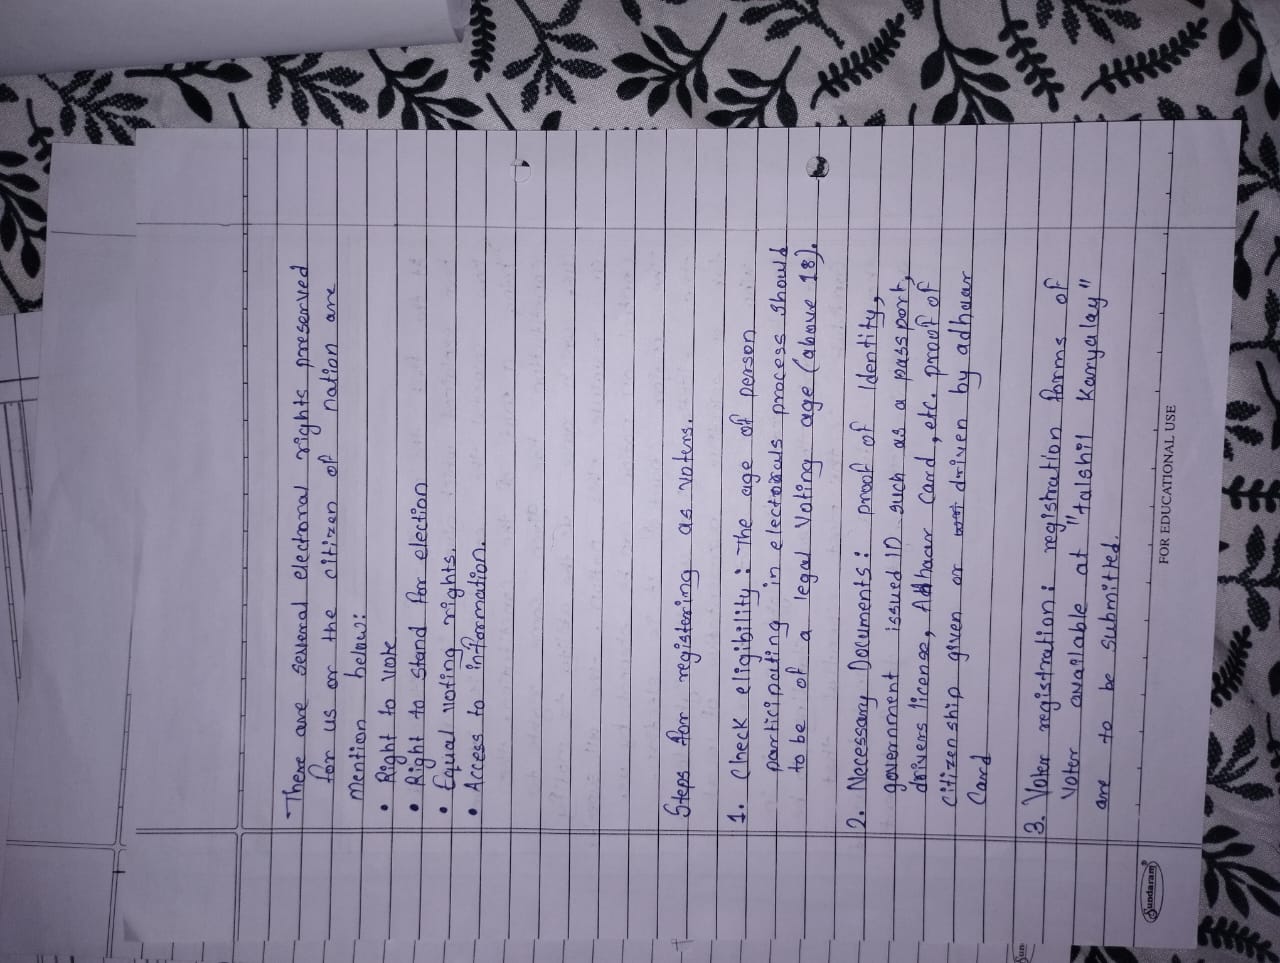 There are several electroral rights preserved
for us or the citizen of nation are
mention below:
• Right to vote
• Right to stand for election
• Equal voting rights.
• Access to information.
Steps for registering as voters.
1. Check eligibility : The age of person
participating in electorals process should
to be of a legal voting age (above 18).
2. Necessary Documents : proof of Identity,
government issued ID such as a passport,
drivers license, Adhaar Card, etc. proof of
citizenship given or driven by adhaar
Card
3. Voter registration : registration forms of
voter available at "talshil Karyalay"
are to be submitted.
Sundaram
FOR EDUCATIONAL USE